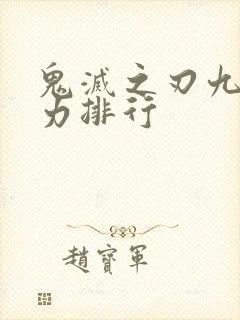 鬼滅之刃九
力排行
趙寶軍